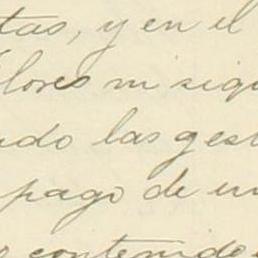 tas, y en el
lores ni siqu
do las gest
pago de un
contenido